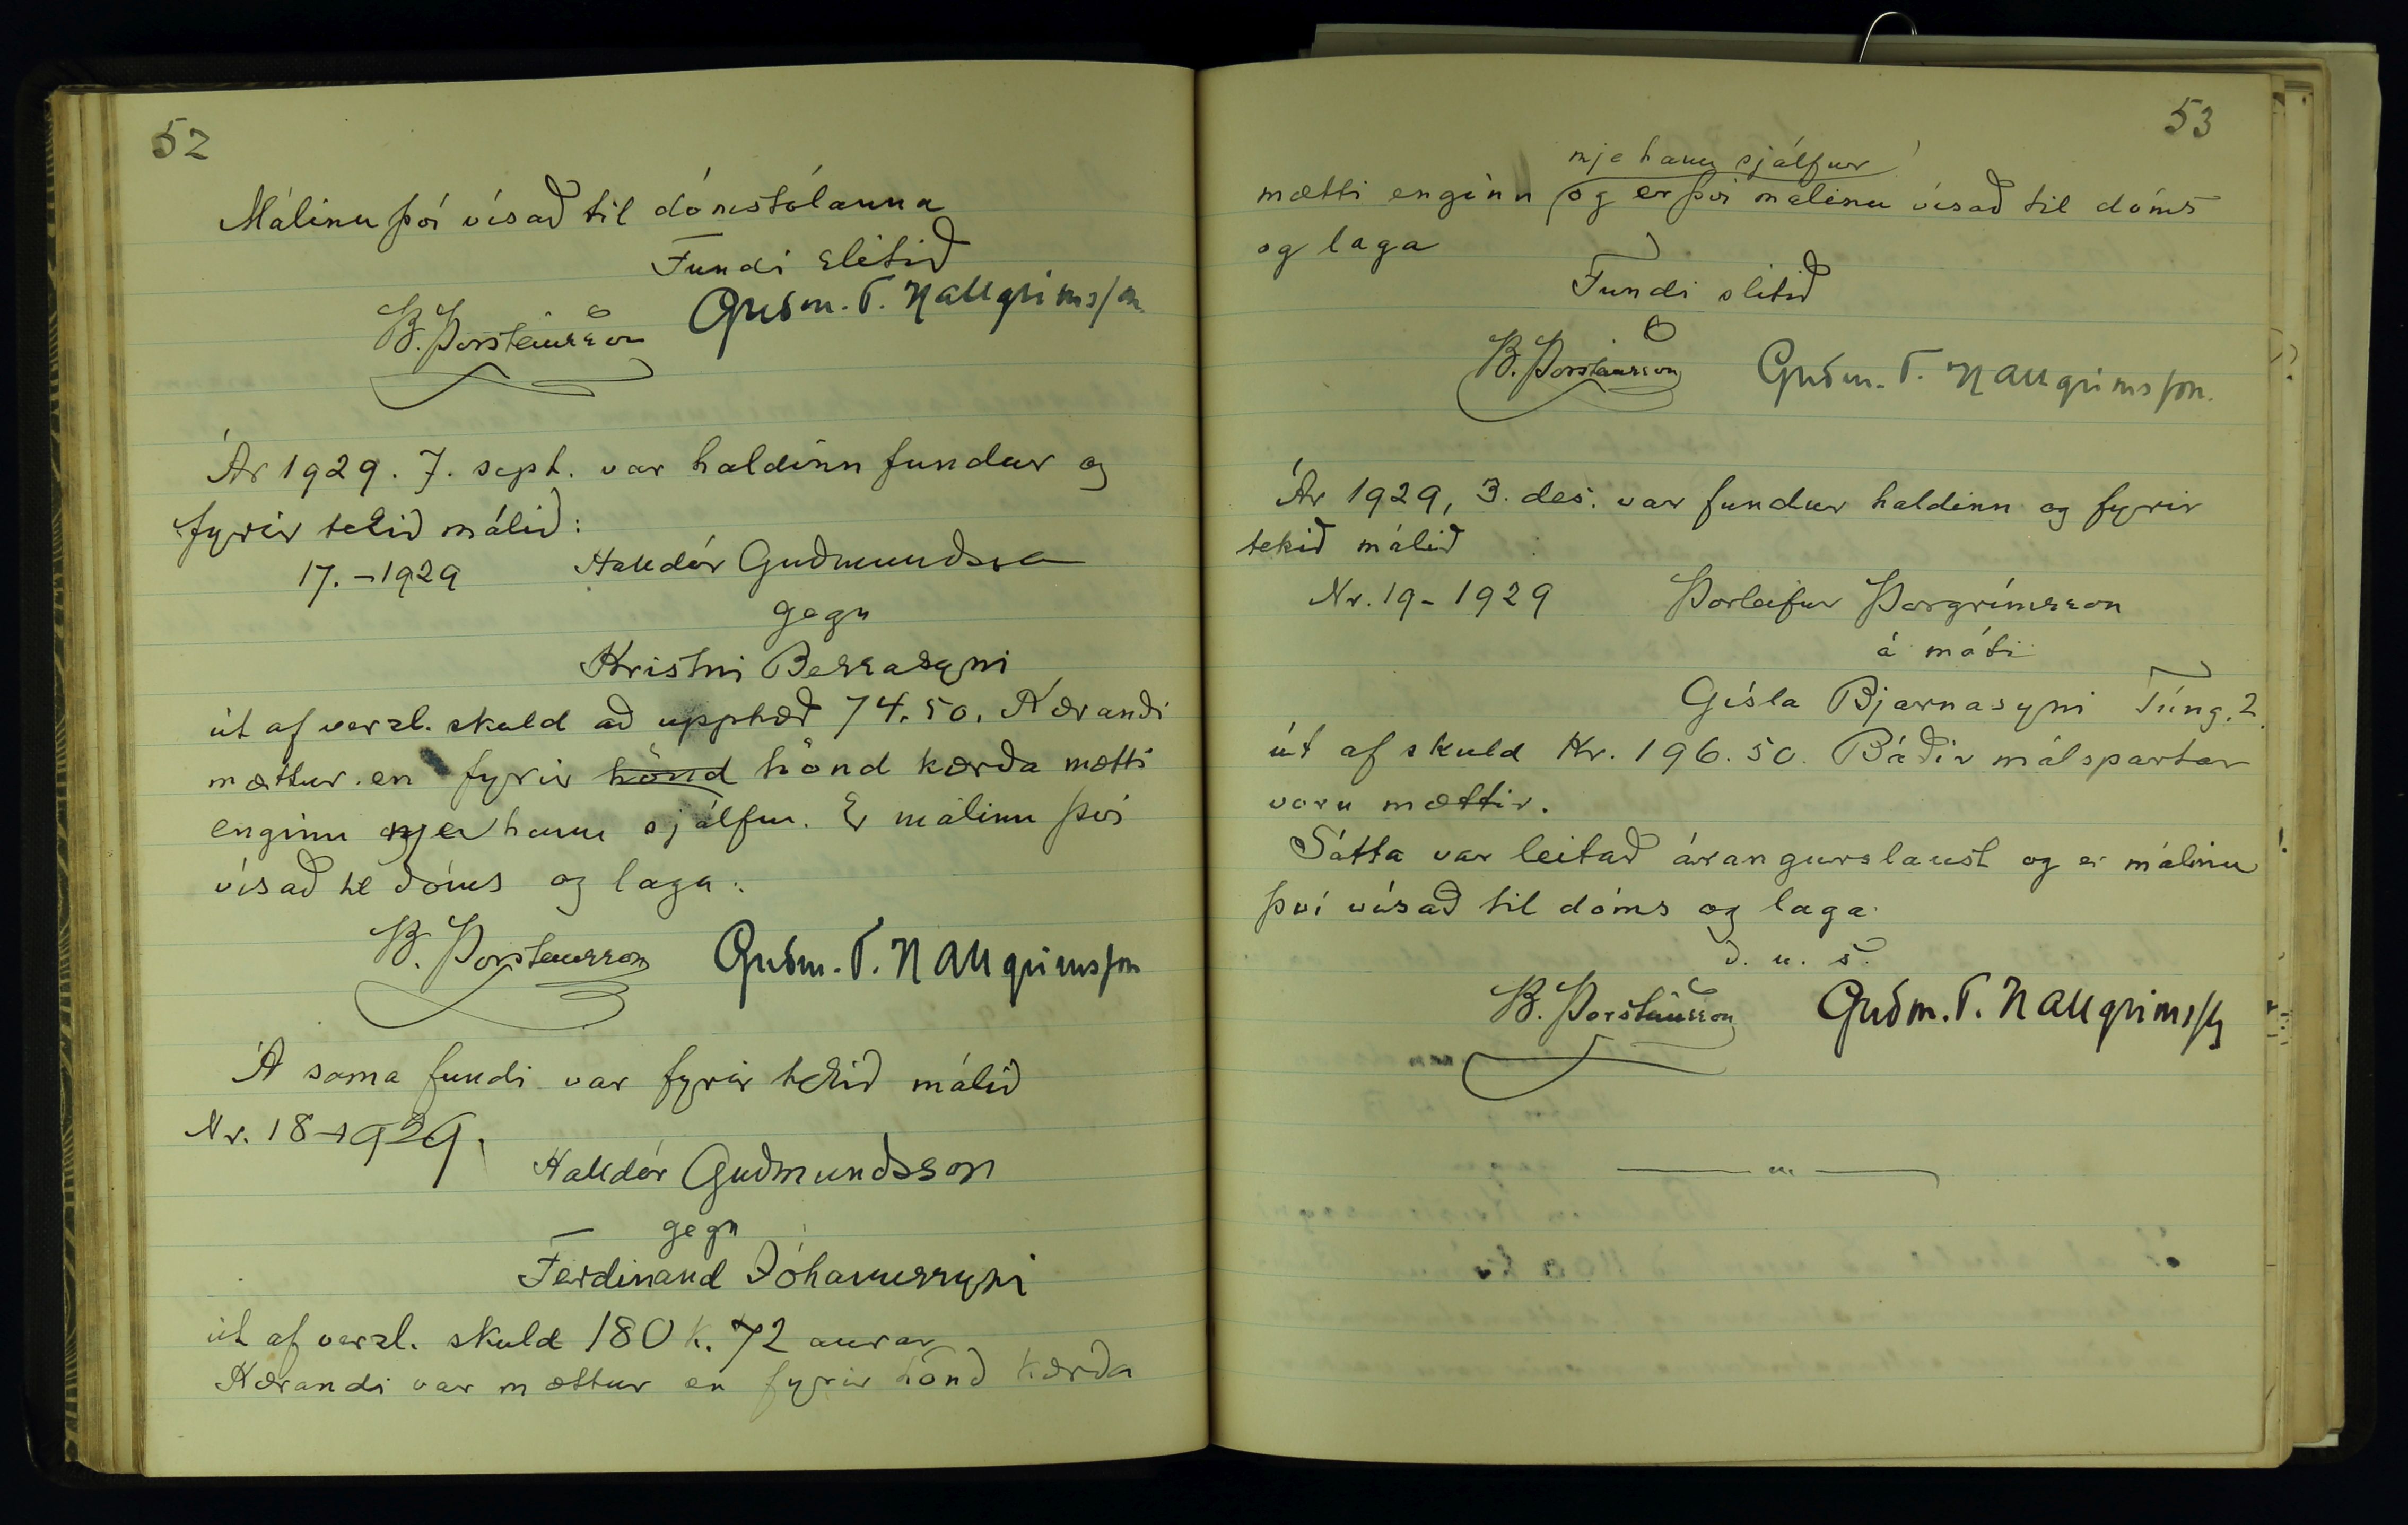 52
Málinu því vísað til dómstólanna
Fundi slitið
B. Þorsteinsson Guðm. T. Hallgrímsson
Ár 1929. 7. sept. var haldinn fundur og
fyrir tekið málið:
17. - 1929 Halldór Guðmundsson
gegn
Kristni Bessasyni
út af verzl. skuld að upphæð 74.50. Kærandi
mættur en fyrir hönd hönd kærða mætti
enginn nje hann sjálfur. Er málinu því
vísað til dóms og laga.
B. Þorsteinsson Guðm. T. Hallgrímsson
Á sama fundi var fyrir tekið málið
Nr. 18 - 1929.
Halldór Guðmundsson
gegn
Ferdinand Jóhannssyni
út af verzl. skuld 180 k. 72 aurar
Kærandi var mættur en fyrir hönd kærða
53
nje hann sjálfur
mætti enginn og er því málinu vísað til dóms
og laga
Fundi slitið
B. Þorsteinsson Guðm. T. Hallgrímsson.
Ár 1929, 3. des. var fundur haldinn og fyrir
tekið málið :
Nr. 19 - 1929 Þorleifur Þorgrímsson
á móti
Gísla Bjarnasyni Túng. 2.
út af skuld Kr. 196.50. Báðir málspartar
voru mættir.
Sátta var leitað árangurslaust og er málinu
því vísað til dóms og laga.
D. u. s.
B. Þorsteinsson Guðm. T. Hallgrímss